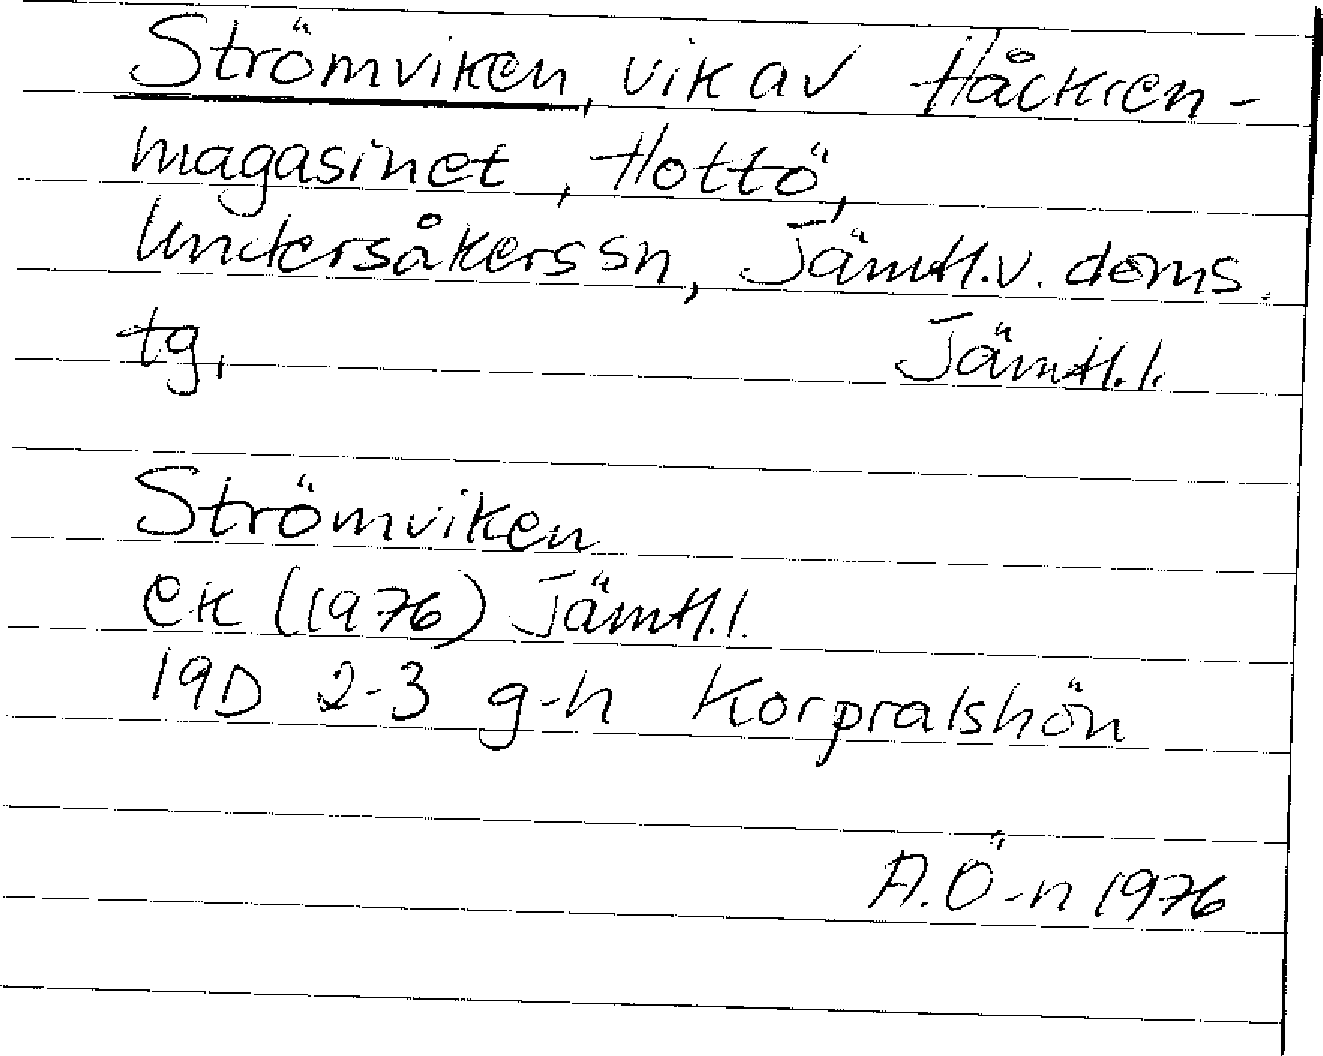 Strömviken, vik av Håckren-
magasinet, Hottö,
Undersåkers sn, Jämtl. v. doms.
tg, Jämtl. l.
Strömviken
ek (1976) Jämtl. l.
19D 2-3 g-h Korpralshön
A. Ö-n 1976